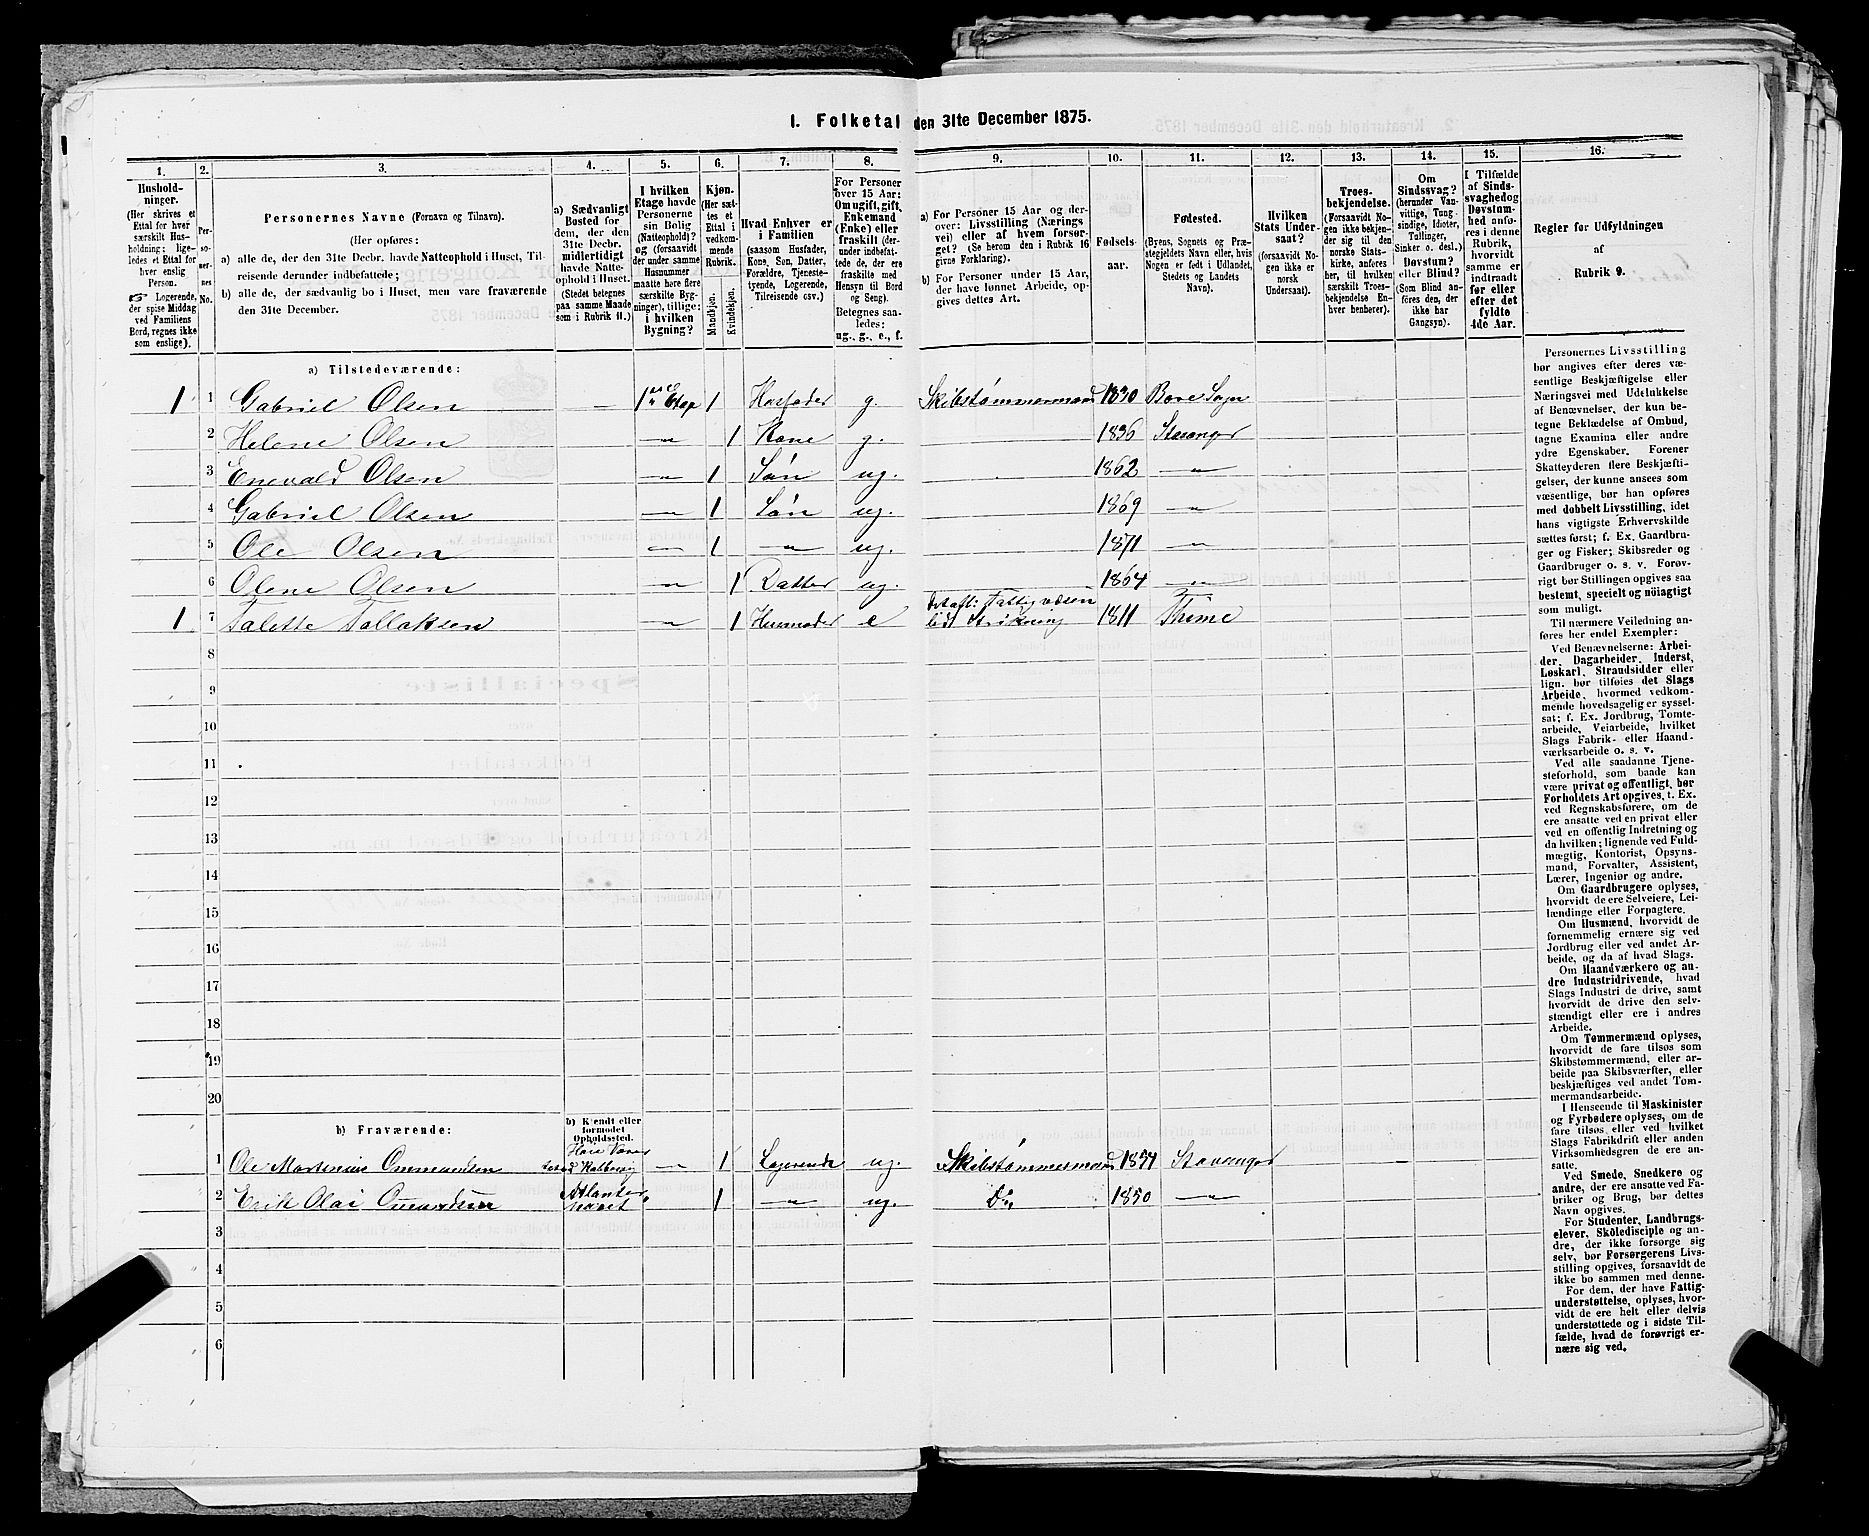 1. Folketal den 31te December 1875.
1. 2. 3. 4. 5. 6. 7. 8. 9. 10. 11. 12. 13. 14. 15. 16.
Hushold-
ninger.
(Her skrives et
Ettal for hver
særskilt Hus-
holdning; lige-
ledes et Ettal for
hver enslig
Person.
☞ Logerende,
der spise Middag
ved Familiens
Bord, regnes ikke
som enslige).
Per-
so-
ner-
nes
No.
Personernes Navne (Fornavn og Tilnavn).
(Her opføres:
a) alle de, der den 31te Decbr. havde Natteophold i Huset, Til-
reisende derunder indbefattede;
b) alle de, der sædvanlig bo i Huset, men vare fraværende
den 31te December.
a) Sædvanligt
Bosted for
dem, der den
31te Decbr.
midlertidigt
havde Natte-
ophold i Huset.
(Stedet betegnes
paa samme Maade
som i Rubrik 11.)
I hvilken
Etage havde
Personerne
sin Bolig
(Natteophold)?
og (forsaavidt
der under samme
Husnummer
maatte høre flere
særskilte Byg-
ninger), tillige:
i hvilken
Bygning?
Kjøn.
(Her sæt-
tes et
Ettal i
vedkom-
mende
Rubrik.
Mandkjøn.
Kvindekjøn.
Hvad Enhver er
i Familien
(saasom Husfader,
Kone, Søn, Datter,
Forældre, Tjeneste-
tyende, Logerende,
Tilreisende osv.)
For Personer
over 15 Aar:
Om ugift, gift,
Enkemand
(Enke) eller
fraskilt (der-
under indbefat-
tede de, der ere
fraskilte med
Hensyn til Bord
og Seng).
Betegnes saa-
ledes:
ug., g., e., f.
a) For Personer 15 Aar og der-
over: Livsstilling (Nærings
vei) eller af hvem forsør-
get? (Se herom den i Rubrik 16
givne Forklaring).
b) For Personer under 15 Aar,
der have lønnet Arbeide, op-
gives dettes Art.
Fødsels-
aar.
Fødested.
(Byens, Sognets og Præ-
stegjeldets Navn eller, hvis
Nogen er født i Udlandet,
Stedets og Landets
Navn).
Hvilken
Stats Under-
saat?
(forsaavidt No-
gen ikke er
norsk
Undersaat).
Troes-
bekjendelse.
(Forsaavidt No-
gen ikke bekjen-
der sig til den
norske Stats-
kirke, anføres
her, til hvilken
særskilt Troes-
bekjendelse En-
hver henhører).
Om
Sindssvag?
(herunder Van-
vittige, Tung-
sindige, Idioter,
Tullinger,
Sinker o. desl.)
Døvstum?
eller Blind?
(Som Blind an-
føres den, der
ikke har
Gangsyn).
I Tilfælde
af Sinds-
svaghed og
Døvstum-
hed anfø-
res i denne
Rubrik,
hvorvidt
samme er
indtraadt
før eller
efter det
fyldte
4de Aar.
Regler før Udfyldningen
af
Rubrik 9.
a) Tilstedeværende:
1 1 Gabriel Olsen — 1ste Etage 1 Husfader g. Skibstømmermand 1830 Bore Sogn
2 Helene Olsen — 1 Kone g. 1836 Stavanger
3 Enevald Olsen — 1 Søn ug. 1862 —
4 Gabriel Olsen — 1 Søn ug. 1869 —
5 Ole Olsen — 1 — ug. 1871 —
6 Olene Olsen — 1 Datter ug. 1864 —
1 7 Talette Tallaksen — 1 Husmoder e Fattigvæsen 1811 Thime
8
9
10
11
12
13
14
15
16
17
18
19
20
b) Fraværende:
b) Kjendt eller
formodet
Opholdssted.
1 Ole Martinius Ommundsen — 1 Logerende ug. Skibstømmermand 1854 Stavanger
2 Erik Olai Ommundsen Atlanter 1 — ug. Do, 1850 —
3
4
5
6
Personernes Livsstilling
bør angives efter deres væ-
sentlige Beskjæftigelse eller
Næringsvei med Udelukkelse
af Benævnelser, der kun be-
tegne Beklædelse af Ombud,
tagne Examina eller andre
ydre Egenskaber. Forener
Skatteyderen flere Beskjæfti-
gelser, der kunne ansees som
væsentlige, bør han opføres
med dobbelt Livsstilling, idet
hans vigtigste Erhvervskilde
sættes først; f. Ex. Gaardbru-
ger og Fisker; Skibsreder og
Gaardbruger o. s. v. Forøv-
rigt bør Stillingen opgives saa
bestemt, specielt og nøiagtigt
som muligt.
Til nærmere Veiledning an-
føres her endel Exempler:
Ved Benævnelserne: Arbei-
der, Dagarbeider, Inderst,
Løskarl, Strandsidder eller
lign. bør tilføies det Slags
Arbeide, hvormed vedkom-
mende hovedsagelig er syssel-
sat; f. Ex. Jordbrug, Tomte-
arbeide, Veiarbeide, hvilket
Slags Fabrik- eller Haand-
værksarbeide o. s. v.
Ved alle saadanne Tjene-
steforhold, som baade kan
være privat og offentligt, bør
Forholdets Art opgives, t. Ex.
ved Regnskabsførere, om de
ere ansatte ved en privat eller
ved en offentlig Indretning og
da hvilken; lignende ved Fuld-
mægtig, Kontorist, Opsyns-
mand, Forvalter, Assistent,
Lærer, Ingeniør og andre.
Om Gaardbrugere oplyses,
hvorvidt de ere Selveiere, Lei-
lændinge eller Forpagtere.
Om Husmænd, hvorvidt de
fornemmelig ernære sig ved
Jordbrug eller ved andet Ar-
beide, og da af hvad Slags.
Om Haandværkere og an-
dre Industridrivende, hvad
Slags Industri de drive, samt
hvorvidt de drive den selv-
stændigt eller ere i andres
Arbeide.
Om Tømmermænd oplyses,
hvorvidt de fare tilsøs som
Skibstømmermænd, eller ar-
beide paa Skibsværfter, eller
beskjæftiges ved andet Tøm-
mermandsarbeide.
I Henseende til Maskinister
og Fyrbødere oplyses, om de
fare tilsøs, eller ved hvilket
Slags Fabrikdrift eller anden
Virksomhedsgren de ere an-
satte.
Ved Smede, Snedkere og
andre, der ere ansatte ved Fa-
briker og Brug, bør dettes
Navn opgives.
For Studenter, Landbrugs-
elever, Skoledisciple og an-
dre, der ikke forsørge sig
selv, bør Forsørgerens Livs-
stilling opgives, forsaavidt de
ikke bo sammen med denne.
For dem, der have Fattig-
understøttelse, oplyses, hvor-
vidt de ere helt eller delvis
understøttede og i sidste Til-
fælde, hvad de forøvrigt er-
nære sig ved.